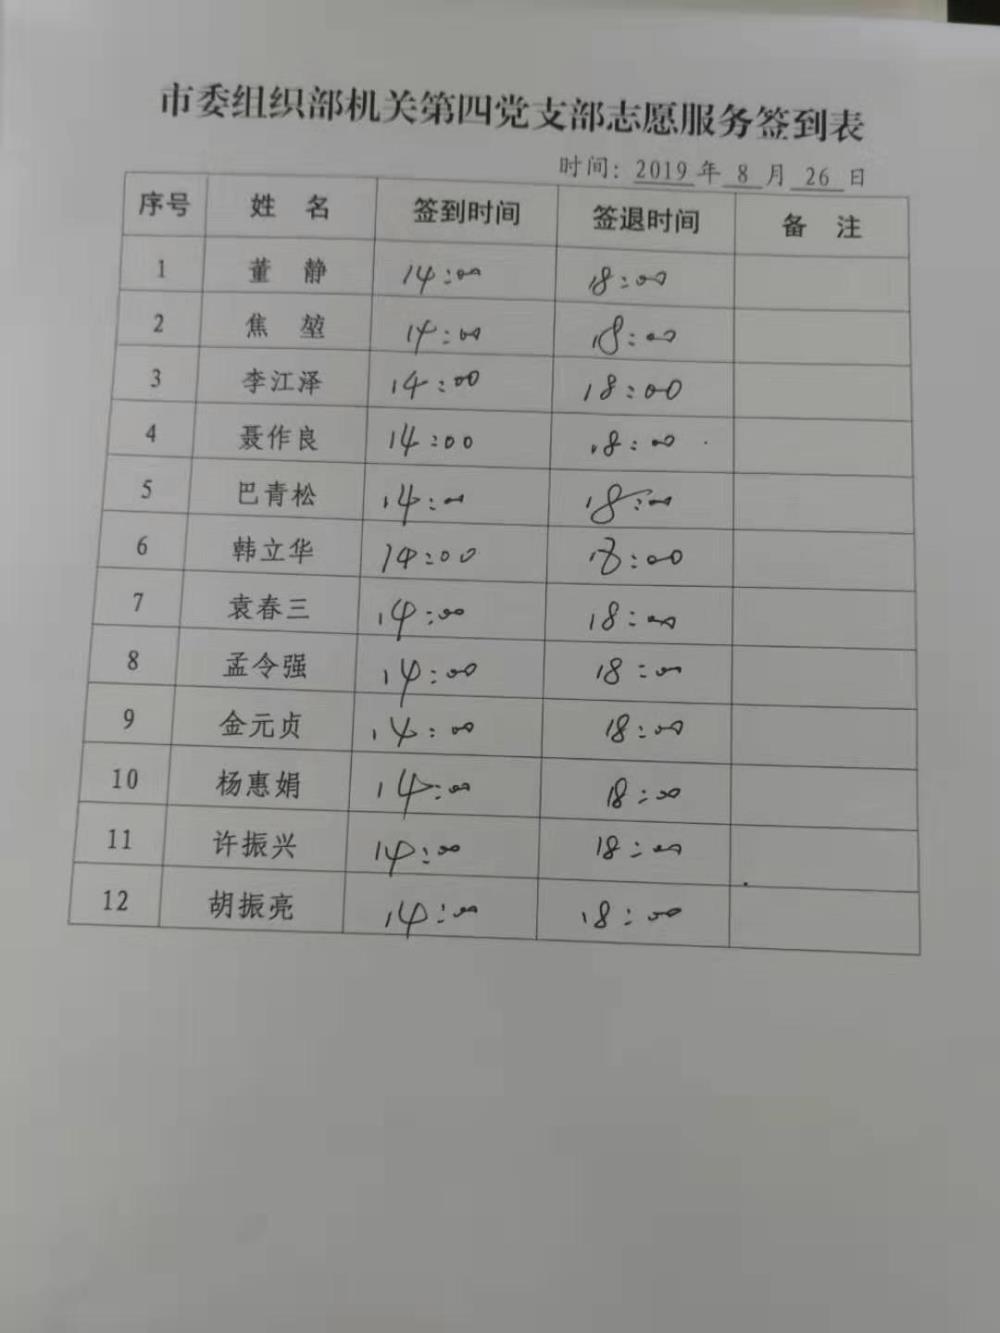 市委组织部机关第四党支部志愿服务签到表
时间：2019年8月26日
序号 姓 名 签到时间 签退时间 备 注
1 董 静 14:00 18:00
2 焦 堃 14:00 18:00
3 李江泽 14:00 18:00
4 聂作良 14:00 18:00
5 巴青松 14:00 18:00
6 韩立华 14:00 18:00
7 袁春三 14:00 18:00
8 孟令强 14:00 18:00
9 金元贞 14:00 18:00
10 杨惠娟 14:00 18:00
11 许振兴 14:00 18:00
12 胡振亮 14:00 18:00